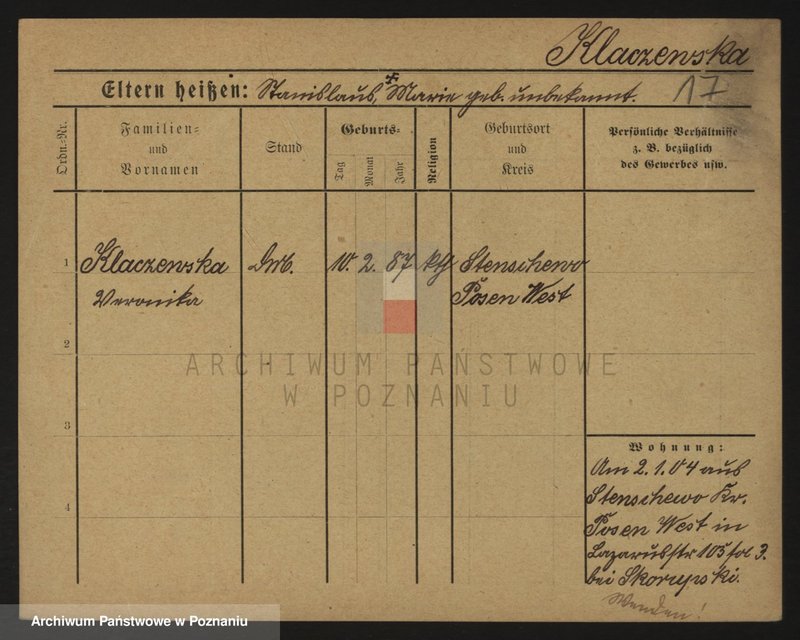 Klaczewska
Eltern heißen: Stanislaus, Marie geb. unbekannt. 17
Ordn.-Nr.
Familien=
und
Vornamen
Stand
Geburts=
Tag
Monat
Jahr
Religion
Geburtsort
und
Kreis
Persönliche Verhältnisse
z. B. bezüglich
des Gewerbes usw.
1 Klaczewska 10. 2. 87 kth Stenschewo
Veronika Posen West
2
ARCHIWUM PAŃSTWOWE
W POZNANIU
3
Wohnung:
Am 2.1.04 aus
Stenschewo Kr.
4
Posen West in
Lazarusstr 103 3.
bei Skorupski.
Wenden!
Archiwum Państwowe w Poznaniu